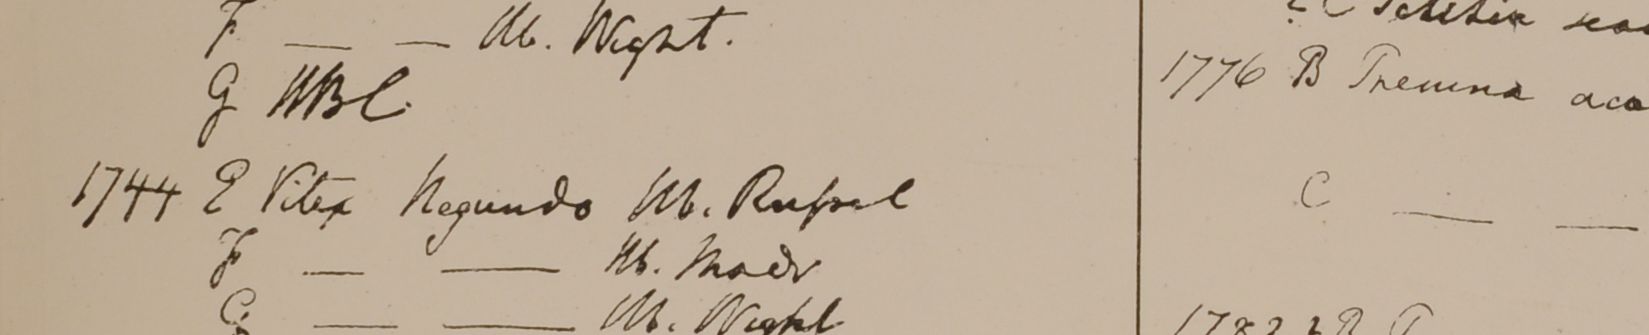 F — — Hb. Wight.
G HBC.
1744 E Vitex Negundo Hb. Russel
F — — Hb. Madr
G — — Hb. Wight
1776 B Premna
C — —